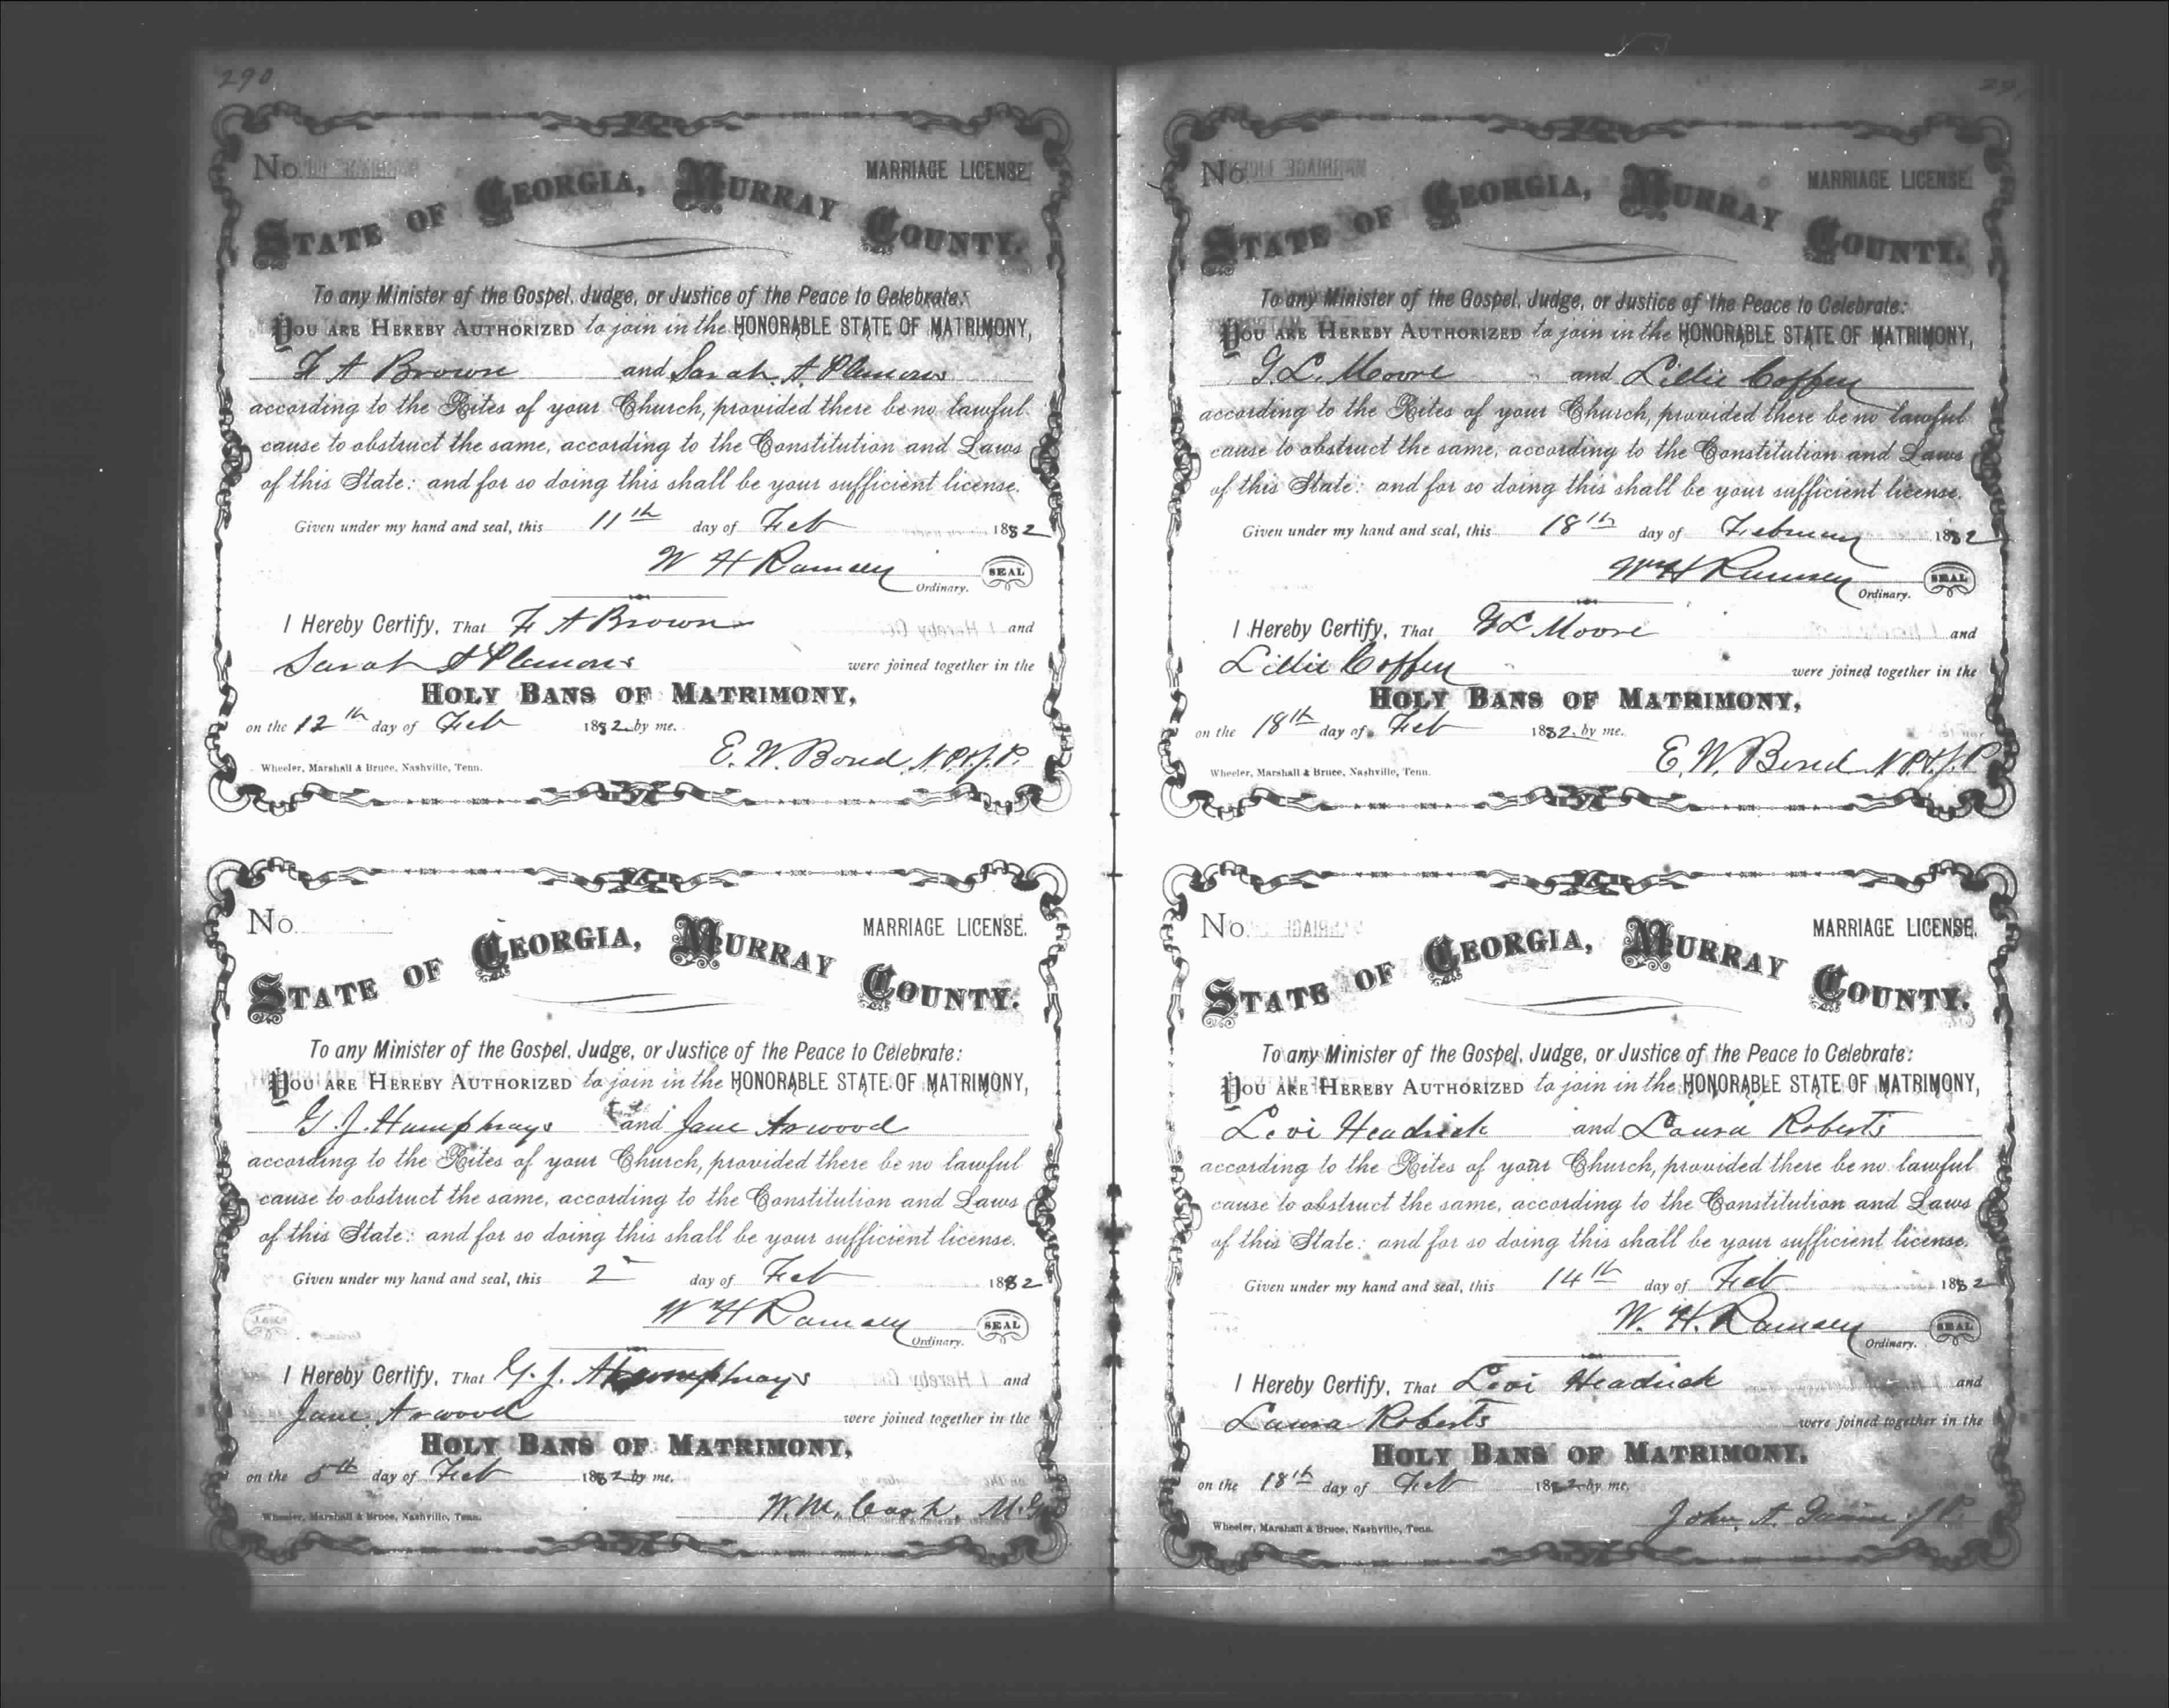 290
No. MARRIAGE LICENSE.
STATE OF GEORGIA, MURRAY COUNTY.
To any Minister of the Gospel, Judge, or Justice of the Peace to Celebrate:
YOU ARE HEREBY AUTHORIZED to join in the HONORABLE STATE OF MATRIMONY,
F A Brown and Sarah A Plemons
according to the Rites of your Church, provided there be no lawful
cause to obstruct the same, according to the Constitution and Laws
of this State: and for so doing this shall be your sufficient license.
Given under my hand and seal, this 11th day of Feb 1882
W H Ramsey SEAL
Ordinary.
I Hereby Certify, That F A Brown and
Sarah A Plemons were joined together in the
HOLY BANS OF MATRIMONY,
on the 12th day of Feb 1882 by me.
E. W. Bond N.P.&J.P.
Wheeler, Marshall & Bruce, Nashville, Tenn.
No. MARRIAGE LICENSE.
STATE OF GEORGIA, MURRAY COUNTY.
To any Minister of the Gospel, Judge, or Justice of the Peace to Celebrate:
YOU ARE HEREBY AUTHORIZED to join in the HONORABLE STATE OF MATRIMONY,
G. J. Humphrays and Jane Arwood
according to the Rites of your Church, provided there be no lawful
cause to obstruct the same, according to the Constitution and Laws
of this State: and for so doing this shall be your sufficient license.
Given under my hand and seal, this 2 day of Feb 1882
W H Ramsey SEAL
Ordinary.
I Hereby Certify, That G. J. Humphrays and
Jane Arwood were joined together in the
HOLY BANS OF MATRIMONY,
on the 5th day of Feb 1882 by me.
W. M. Cash, M.G.
Wheeler, Marshall & Bruce, Nashville, Tenn.
No. MARRIAGE LICENSE.
STATE OF GEORGIA, MURRAY COUNTY.
To any Minister of the Gospel, Judge, or Justice of the Peace to Celebrate:
YOU ARE HEREBY AUTHORIZED to join in the HONORABLE STATE OF MATRIMONY,
G. L. Moore and Lillie Coffey
according to the Rites of your Church, provided there be no lawful
cause to obstruct the same, according to the Constitution and Laws
of this State: and for so doing this shall be your sufficient license.
Given under my hand and seal, this 18th day of February 1882
Wm H Ramsey SEAL
Ordinary.
I Hereby Certify, That G L Moore and
Lillie Coffey were joined together in the
HOLY BANS OF MATRIMONY,
on the 18th day of Feb 1882 by me.
E. W. Bond N.P.&J.P.
Wheeler, Marshall & Bruce, Nashville, Tenn.
No. MARRIAGE LICENSE.
STATE OF GEORGIA, MURRAY COUNTY.
To any Minister of the Gospel, Judge, or Justice of the Peace to Celebrate:
YOU ARE HEREBY AUTHORIZED to join in the HONORABLE STATE OF MATRIMONY,
Levi Headrick and Laura Roberts
according to the Rites of your Church, provided there be no lawful
cause to obstruct the same, according to the Constitution and Laws
of this State: and for so doing this shall be your sufficient license.
Given under my hand and seal, this 14th day of Feb 1882
W. H. Ramsey SEAL
Ordinary.
I Hereby Certify, That Levi Headrick and
Laura Roberts were joined together in the
HOLY BANS OF MATRIMONY,
on the 18th day of Feb 1882 by me.
John A. J.P.
Wheeler, Marshall & Bruce, Nashville, Tenn.